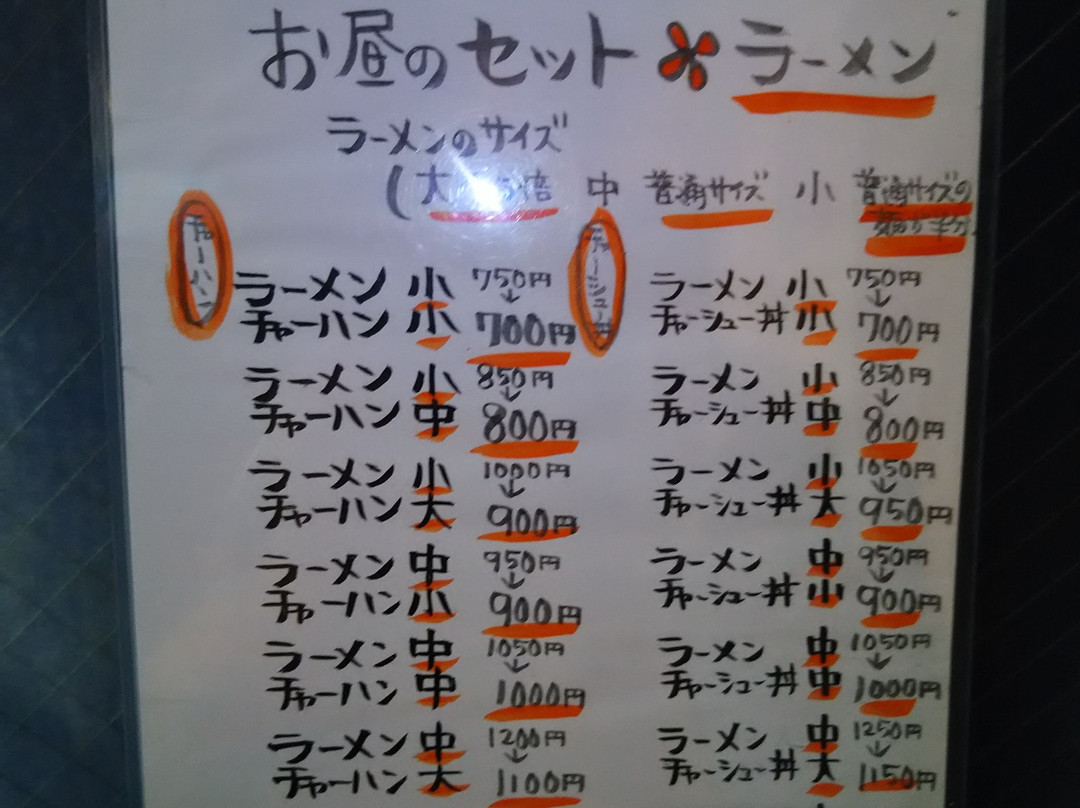 お昼のセット ラーメン
ラーメンのサイズ
(大 倍 中 普通サイズ 小 普通サイズの
麺の半分
チャーハン
ラーメン 小 750円
↓
チャーハン 小 700円
ラーメン 小 850円
↓
チャーハン 中 800円
ラーメン 小 1000円
↓
チャーハン 大 900円
ラーメン 中 950円
↓
チャーハン 小 900円
ラーメン 中 1050円
↓
チャーハン 中 1000円
ラーメン 中 1200円
↓
チャーハン 大 1100円
チャーシュー丼
ラーメン 小 750円
↓
チャーシュー丼 小 700円
ラーメン 小 850円
↓
チャーシュー丼 中 800円
ラーメン 小 1050円
↓
チャーシュー丼 大 950円
ラーメン 中 950円
↓
チャーシュー丼 小 900円
ラーメン 中 1050円
↓
チャーシュー丼 中 1000円
ラーメン 中 1250円
↓
チャーシュー丼 大 1150円